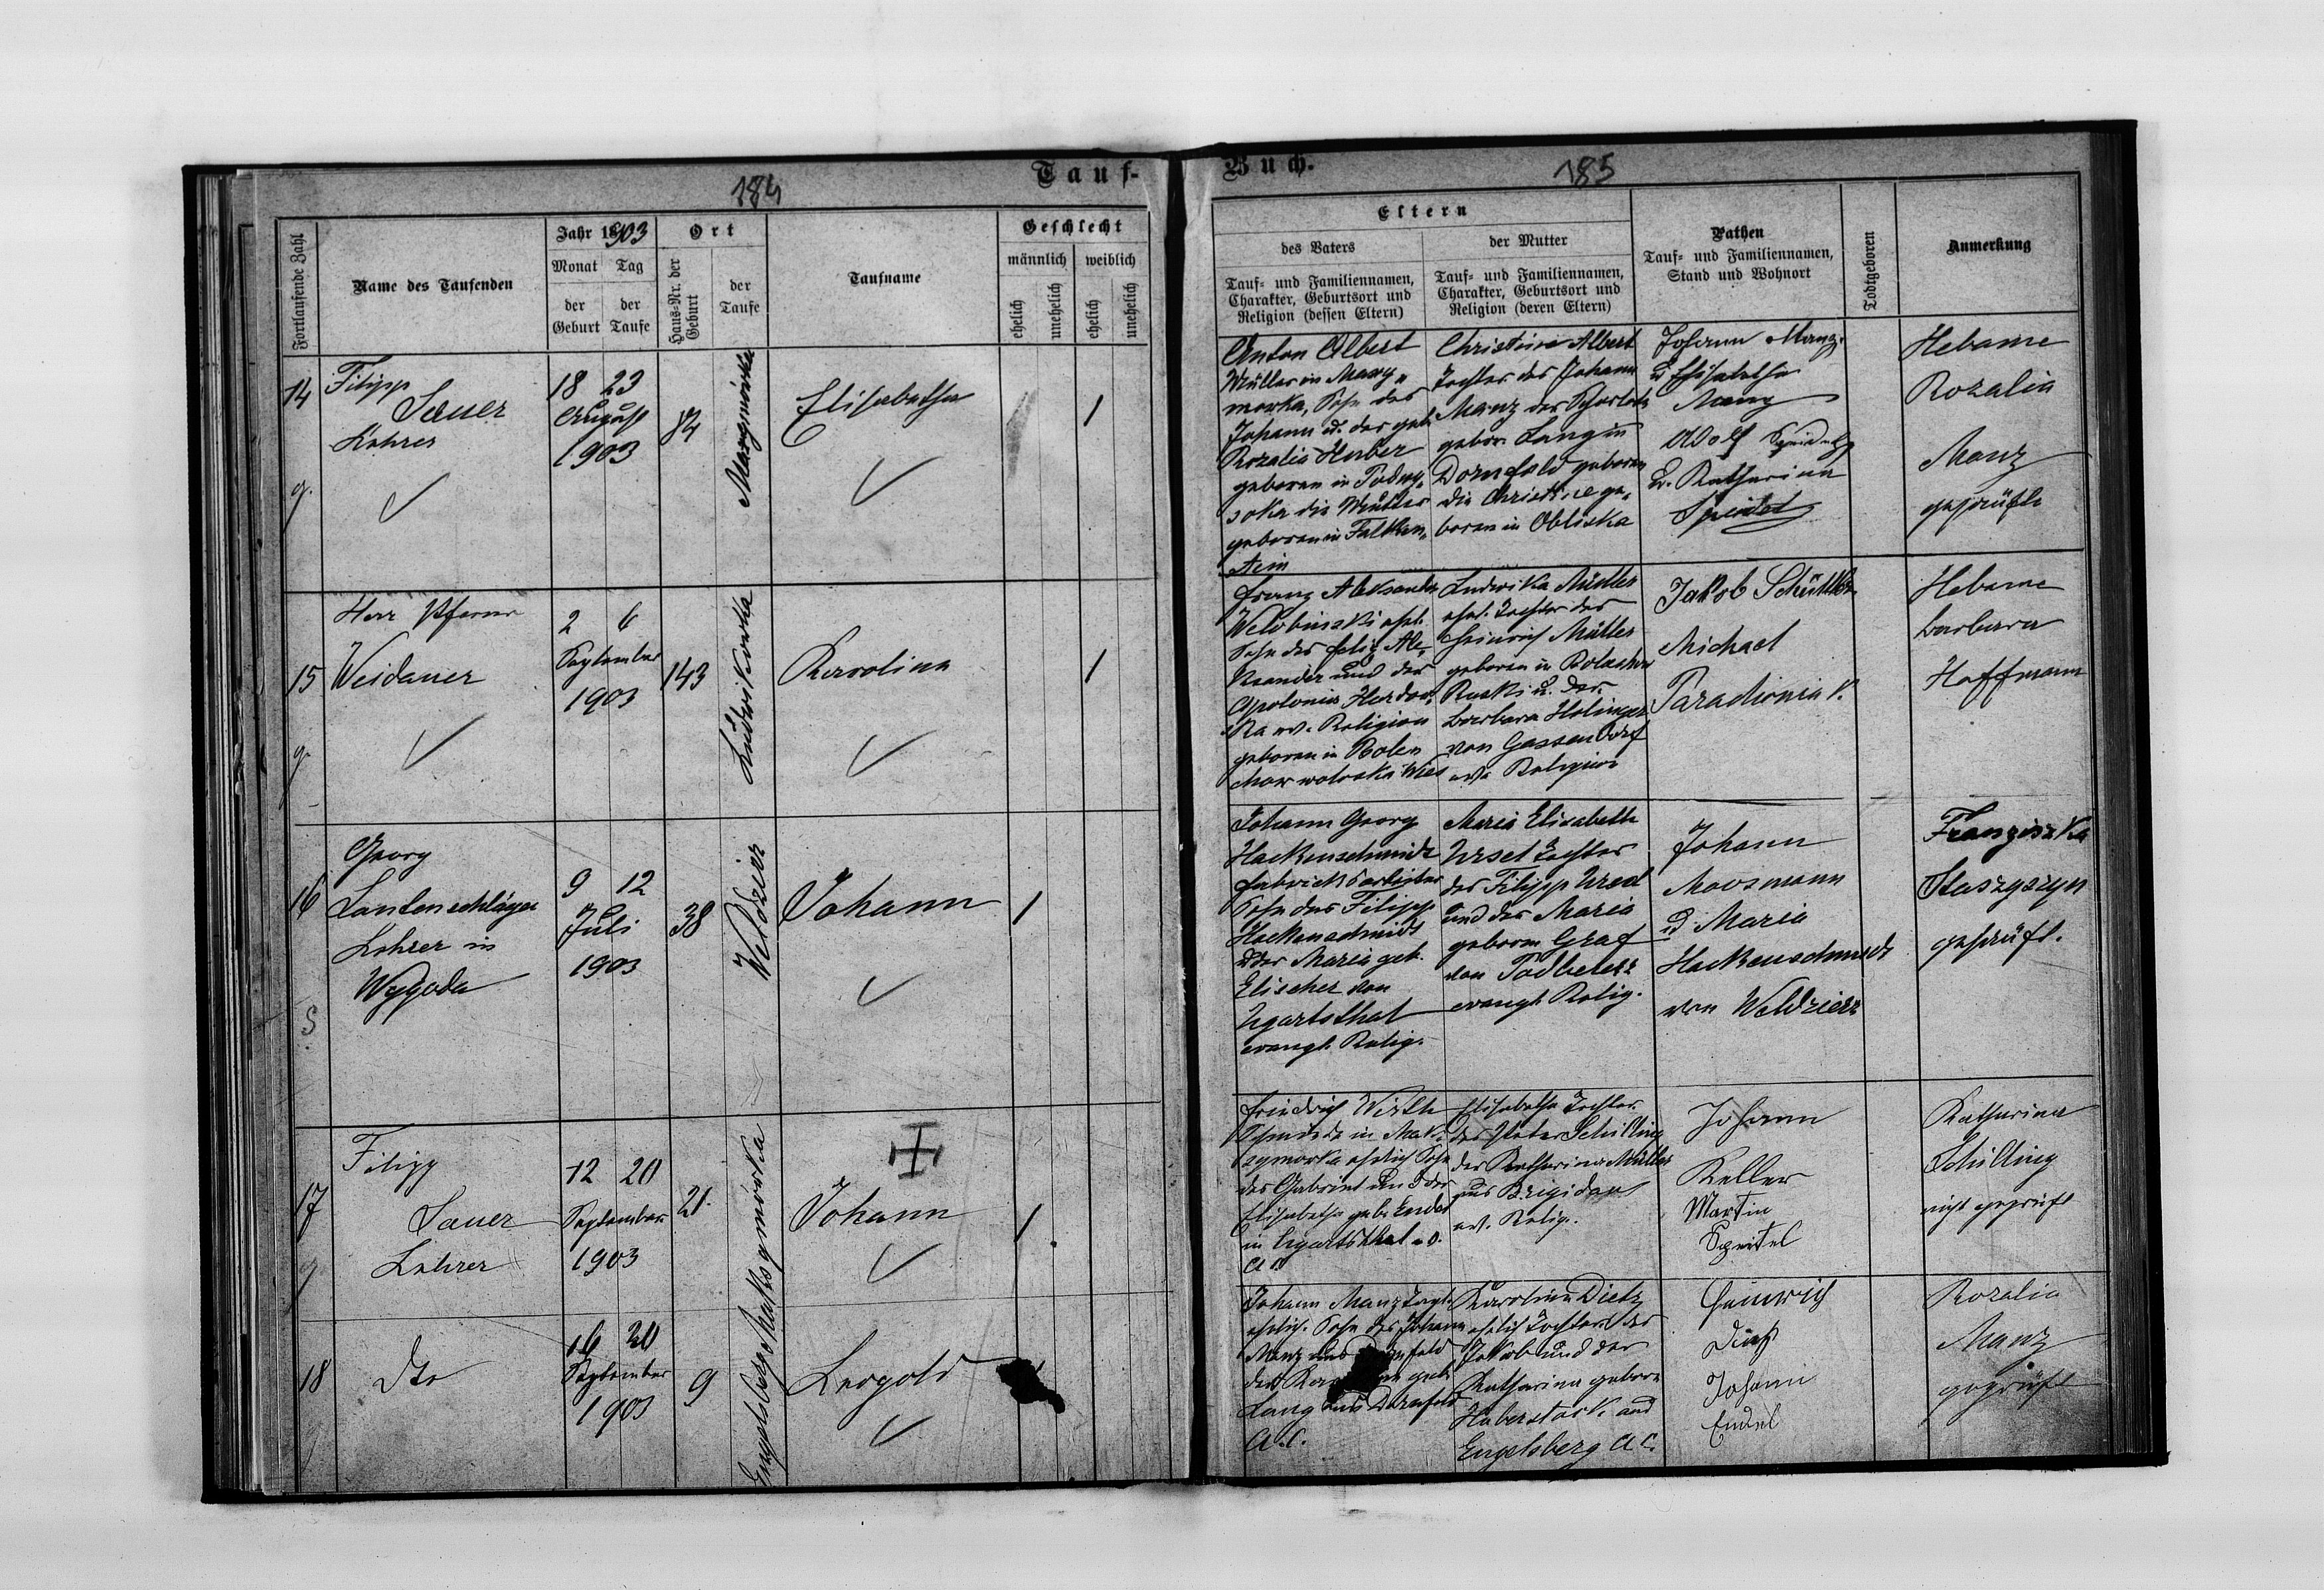 184
Tauf-
Fortlaufende Zahl
Name des Taufenden
Jahr 1903
Monat Tag
der der
Geburt Taufe
Ort
Haus-Nr. der Geburt
der Taufe
Taufname
Geschlecht
männlich weiblich
ehelich unehelich ehelich unehelich
14
Filipp
Sauer
Lehrer
g.
18 23
August
1903
84
Elisabetha
1
15
Herr Pfarrer
Weidauer
2 6
September
1903
143
Ludwikówka
Karolina
1
16
Georg
Lautenschläger
Lehrer in
Wygoda
9 12
Juli
1903
38
Weldzierz
Johann
1
17
Filipp
Sauer
Lehrer
12 20
September
1903
21.
Johann
1
18
Dto
16 20
September
1903
9
Engelsberg
Maksymówka
Leopold
Buch.
185
Eltern
des Vaters
Tauf- und Familiennamen,
Charakter, Geburtsort und
Religion (dessen Eltern)
der Mutter
Tauf- und Familiennamen,
Charakter, Geburtsort und
Religion (deren Eltern)
Pathen
Tauf- und Familiennamen,
Stand und Wohnort
Todtgeboren
Anmerkung
Anton Albert
Müller in Maxy-
mowka, Sohn des
Johann u. der geb
Rozalia Huber
geboren in Podwy-
soka die Mutter
geboren in Falken-
stein
Christine Albert
Tochter des Johann
Manz der
gebor. Lang in
Dornfeld geboren
die Christine ge-
boren in Obliska
Johann Manz
u Elisabetha
Manz
Adolf
u. Katharina
Speidel
Hebame
Rozalia
Manz
geprüfte
Franz Aleksander
ehel.
Sohn des Felix Ale-
ksander und der
Apolonia
ev. Religion
geboren in
Ludwika Müller
ehel. Tochter des
Heinrich Müller
geboren in
u. der
Barbara Holinger
von Gassendorf
ev. Religion
Jakob
Michael
Hebame
Barbara
Hoffmann
Johann Georg
Hackenschmidt
Fabricksarbeiter
Sohn des Filipp
Hackenschmidt
u der Maria geb.
Elischer von
Ugartsthal
evangl. Relig.
Maria Elisabeth
Tochter
des Filipp
und der Maria
geboren Graf
von
evangl. Relig.
Johann
Moosmann
u Maria
Hackenschmidt
von Weldzierz
Franziszka
Staszyszyn
geprüft.
Friedrich Wirth
Schmiede in Mak-
symowka ehelich Sohn
des Gabriel und der
Elisabetha geb. Endel
in Ugartsthal
Elisabetha Tochter
des Peter Schilling
der Katharina Müller
aus Brigidau
ev. Relig.
Johann
Keller
Martin
Katharina
Schilling
nicht geprüft
Johann Manz
ehelich. Sohn des Johann
Manz aus Dornfeld
der geb.
Lang aus Dornfeld
A.C.
Karolina Dietz
ehelich Tochter des
Jakob und der
Katharina geboren
Haberstock aus
Engelsberg A.C.
Heinrich
Dietz
Johann
Endel
Rozalia
Manz
geprüft